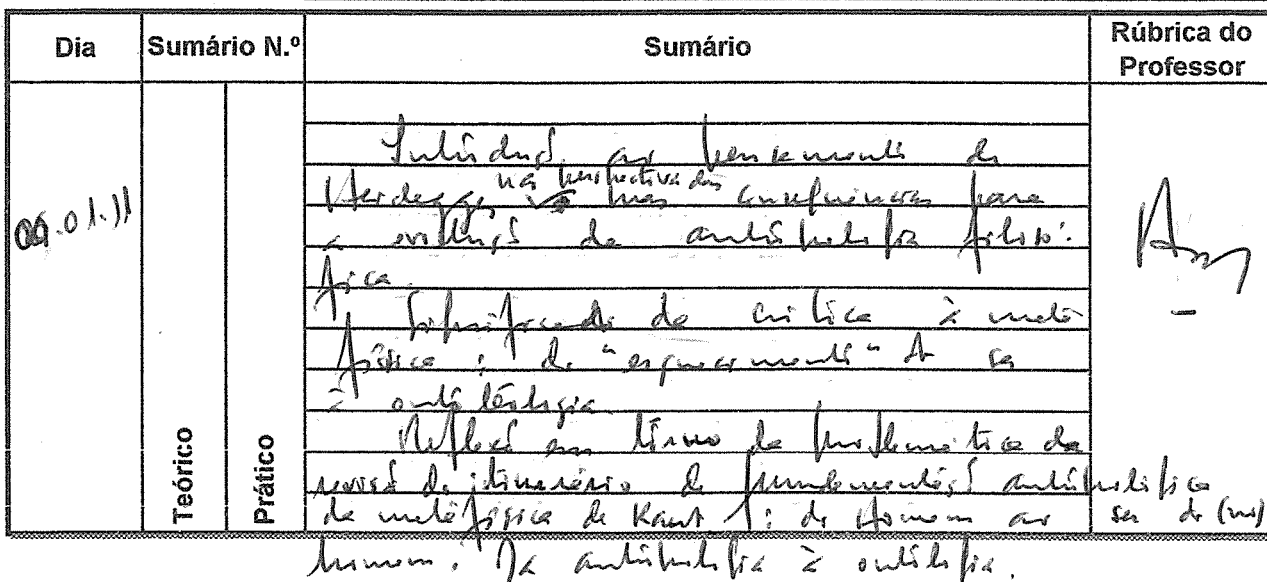 Dia Sumário N.º Sumário Rúbrica do Professor
09.01.11
Teórico
Prático
Introdução ao pensamento de
Heidegger, na perspectiva das suas consequências para
a evolução da antropologia filosó-
fica.
Significado da crítica à metá
física: do "esquecimento" do ser
à ontoteologia.
Reflexão em torno da problemática da
revisão do itinerário de fundamentação antropológica
da metafísica de Kant: do Homem ao ser do (no)
homem. Da antropologia à ontologia.